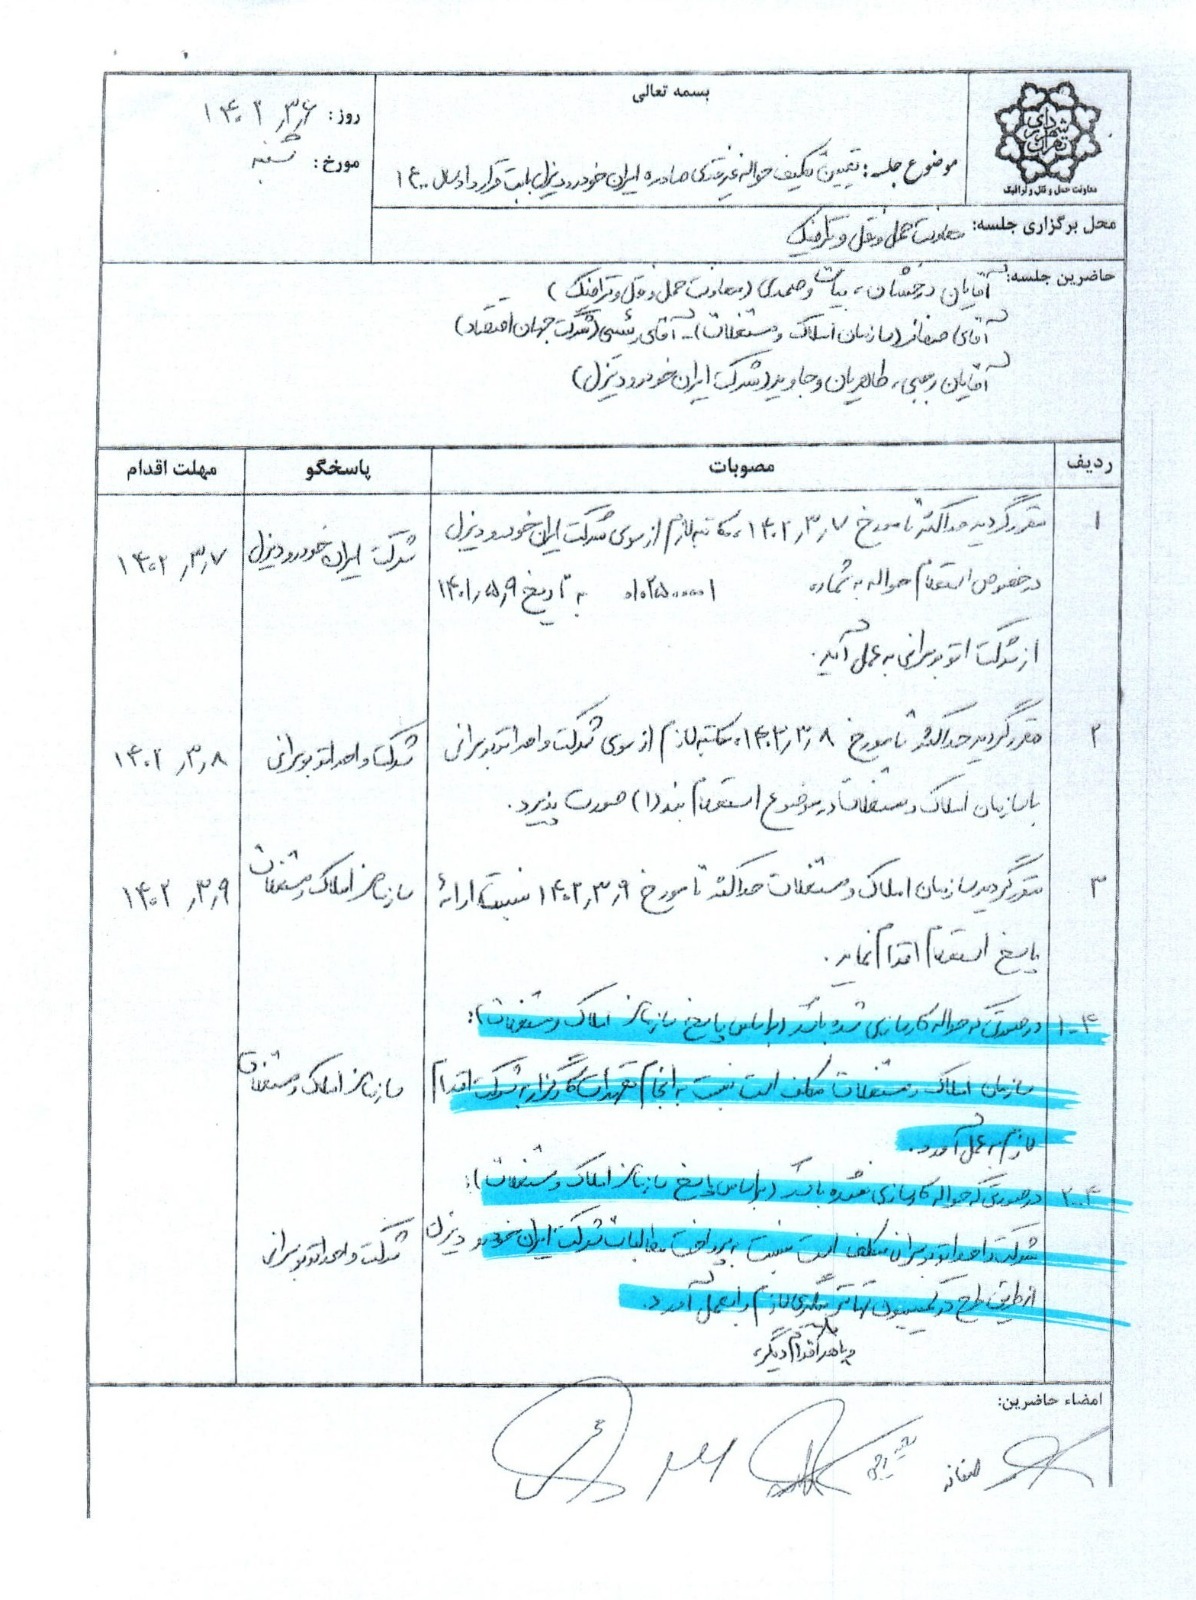 بسمه تعالی
شهرداری تهران
معاونت حمل و نقل و ترافیک
موضوع جلسه: تعیین تکلیف حواله غیرنقدی صادره ایران خودرو دیزل بابت قرارداد سال ۱۴۰۰
روز: ۱۴۰۲٫۳٫۶
مورخ: شنبه
محل برگزاری جلسه: معاونت حمل و نقل و ترافیک
حاضرین جلسه: آقایان درخشان، بیات و صمدی (معاونت حمل و نقل و ترافیک)
آقای (سازمان املاک و مستغلات) - آقای رئیسی (شرکت جهان اقتصاد)
آقایان رجبی، طاهریان و جاوید (شرکت ایران خودرو دیزل)
ردیف مصوبات پاسخگو مهلت اقدام
۱ مقرر گردید حداکثر تا مورخ ۱۴۰۲٫۳٫۷، مکاتبه لازم از سوی شرکت ایران خودرو دیزل
شرکت ایران خودرو دیزل ۱۴۰۲٫۳٫۷
در خصوص استعلام حواله به شماره ۰۱۰۲۵۰۰۰۰۰۱ به تاریخ ۱۴۰۱٫۵٫۹
از شرکت اتوبوسرانی به عمل آید.
۲ مقرر گردید حداکثر تا مورخ ۱۴۰۲٫۳٫۸، مکاتبه لازم از سوی شرکت واحد اتوبوسرانی
شرکت واحد اتوبوسرانی ۱۴۰۲٫۳٫۸
با سازمان املاک و مستغلات در موضوع استعلام بند (۱) صورت پذیرد.
۳ مقرر گردید سازمان املاک و مستغلات حداکثر تا مورخ ۱۴۰۲٫۳٫۹ نسبت به ارائه
سازمان املاک و مستغلات ۱۴۰۲٫۳٫۹
پاسخ استعلام اقدام نماید.
۴-۱ در صورتی که حواله کارسازی شده باشد (بر اساس پاسخ سازمان املاک و مستغلات):
سازمان املاک و مستغلات مکلف است نسبت به انجام تعهدات کارگزار به شرکت اقدام
سازمان املاک و مستغلات
لازم به عمل آورد.
۴-۲ در صورتی که حواله کارسازی نشده باشد (بر اساس پاسخ سازمان املاک و مستغلات):
شرکت واحد اتوبوسرانی مکلف است نسبت به پرداخت مطالبات شرکت ایران خودرو دیزل
شرکت واحد اتوبوسرانی
از طریق طرح در کمیسیون تهاتر پیگیری لازم را به عمل آورد.
و یا هر اقدام دیگر،
امضاء حاضرین: